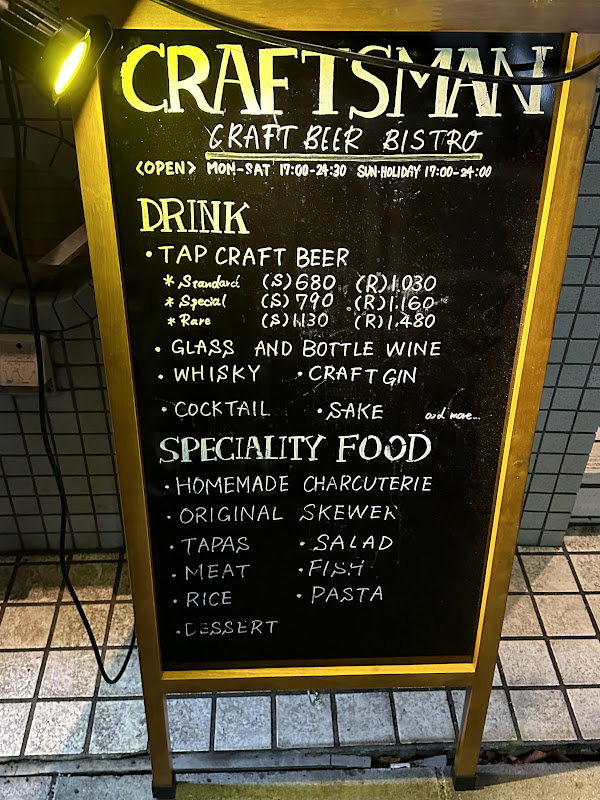 CRAFTSMAN
CRAFT BEER BISTRO
<OPEN> MON-SAT 17:00-24:30 SUN·HOLIDAY 17:00-24:00
DRINK
• TAP CRAFT BEER
* Standard (S) 680 (R) 1.030
* Special (S) 790 (R) 1,160
* Rare (S) 1130 (R) 1,480
• GLASS AND BOTTLE WINE
• WHISKY • CRAFT GIN
• COCKTAIL • SAKE and more...
SPECIALITY FOOD
• HOMEMADE CHARCUTERIE
• ORIGINAL SKEWER
• TAPAS • SALAD
• MEAT • FISH
• RICE • PASTA
• DESSERT